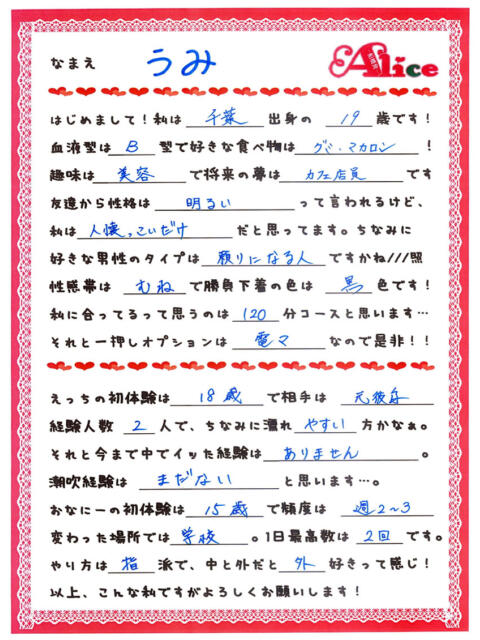 なまえ うみ
Alice
はじめまして！私は 千葉 出身の 19 歳です！
血液型は B 型で好きな食べ物は グミ・マカロン ！
趣味は 美容 で将来の夢は カフェ店員 です
友達から性格は 明るい って言われるけど、
私は 人懐っこいだけ だと思ってます。ちなみに
好きな男性のタイプは 頼りになる人 ですかね///照
性感帯は むね で勝負下着の色は 黒 色です！
私に合ってるって思うのは 120 分コースと思います…
それと一押しオプションは 電マ なので是非！！
えっちの初体験は 18歳 で相手は 元彼氏
経験人数 2 人で、ちなみに濡れ やすい 方かなぁ。
それと今まで中でイッた経験は ありません 。
潮吹経験は まだない と思います…。
以上、こんな私ですがよろしくお願いします！